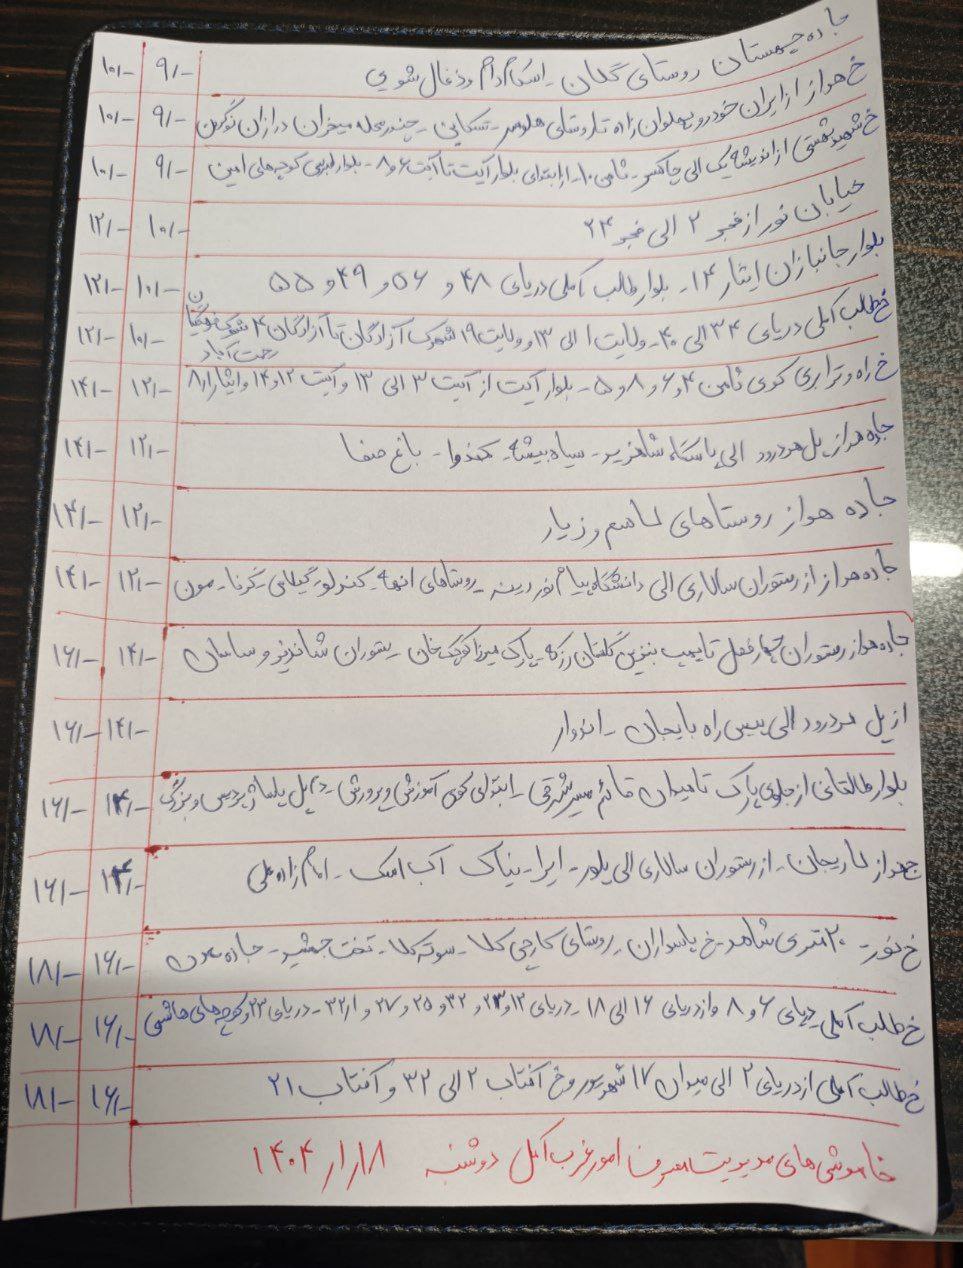 جاده چمستان روستای گلان - اسکام دام و ذغال شویی ۹/- ۱۰/-
خ هراز از ایران خودرو پهلوان زاده تا روستای هلومسر - تسکابن - چندرمحله میخران درازان نوکرین ۹/- ۱۰/-
خ شهید بهشتی از اندیشه یک الی چاکسر - ثامن ۱۰ - از ابتدای بلوار آیت تا آیت ۶ و ۸ - بلوار کوچه های امین ۹/- ۱۰/-
خیابان نور از فجر ۲ الی فجر ۲۴ ۱۰/- ۱۲/-
بلوار جانبازان ایثار ۱۴ - بلوار طالب آملی دریای ۴۸ و ۵۶ و ۴۹ و ۵۵ ۱۰/- ۱۲/-
خ طالب آملی دریای ۳۴ الی ۴۰ - ولایت ۱ الی ۱۳ و ولایت ۱۹ شهرک آزادگان تا آزادگان ۴ شهرک رحمت آباد ۱۰/- ۱۲/-
خ راه و ترابری کوی ثامن ۴ و ۶ و ۸ و ۵ - بلوار آیت از آیت ۳ الی ۱۳ و آیت ۱۲ و ۱۴ و ایثار ۸ ۱۲/- ۱۴/-
جاده هراز پل هردرود الی پاسگاه شاهزید - سیاه بیشه - کهنذوا - باغ صفا ۱۲/- ۱۴/-
جاده هراز روستاهای لهاسم و زیار ۱۲/- ۱۴/-
جاده هراز از رستوران سالاری الی دانشگاه پیام نور رینه - روستاهای انهه - کندلو - گیلاس - گرنا - مون ۱۲/- ۱۴/-
جاده هراز رستوران چهار فصل تا پمپ بنزین گلستان رزکه - پارک میرزا کوچک خان - رستوران شاندیز و سامان ۱۴/- ۱۶/-
از پل هردرود الی سه راه بایجان - اندوار ۱۴/- ۱۶/-
بلوار طالقانی از جلوی پارک تا میدان قائم مسیر شرقی - ابتدای کوی آموزش و پرورش - پل پاساژ پردیس و بزرگ ۱۴/- ۱۶/-
ج هراز لاریجان - از رستوران سالاری الی پلور - ایرا - نیاک آب اسک - امام زاده علی ۱۴/- ۱۶/-
خ نور - ۲۰ متری شاهد - خ پاسداران - روستای کارچی کلا - سوته کلا - تخت جمشید - جاده معدن ۱۶/- ۱۸/-
خ طالب آملی دریای ۶ و ۸ و از دریای ۱۶ الی ۱۸ - دریای ۱۲ و ۲۳ و ۳۲ و ۲۵ و ۲۷ و ۳۲/۱ - دریای ۲۳ و کوچه های هاشمی ۱۶/- ۱۸/-
خ طالب آملی از دریای ۲ الی میدان ۱۷ شهریور و خ آفتاب ۲ الی ۳۲ و آفتاب ۲۱ ۱۶/- ۱۸/-
خاموشی های مدیریت مصرف امور غرب آمل دوشنبه